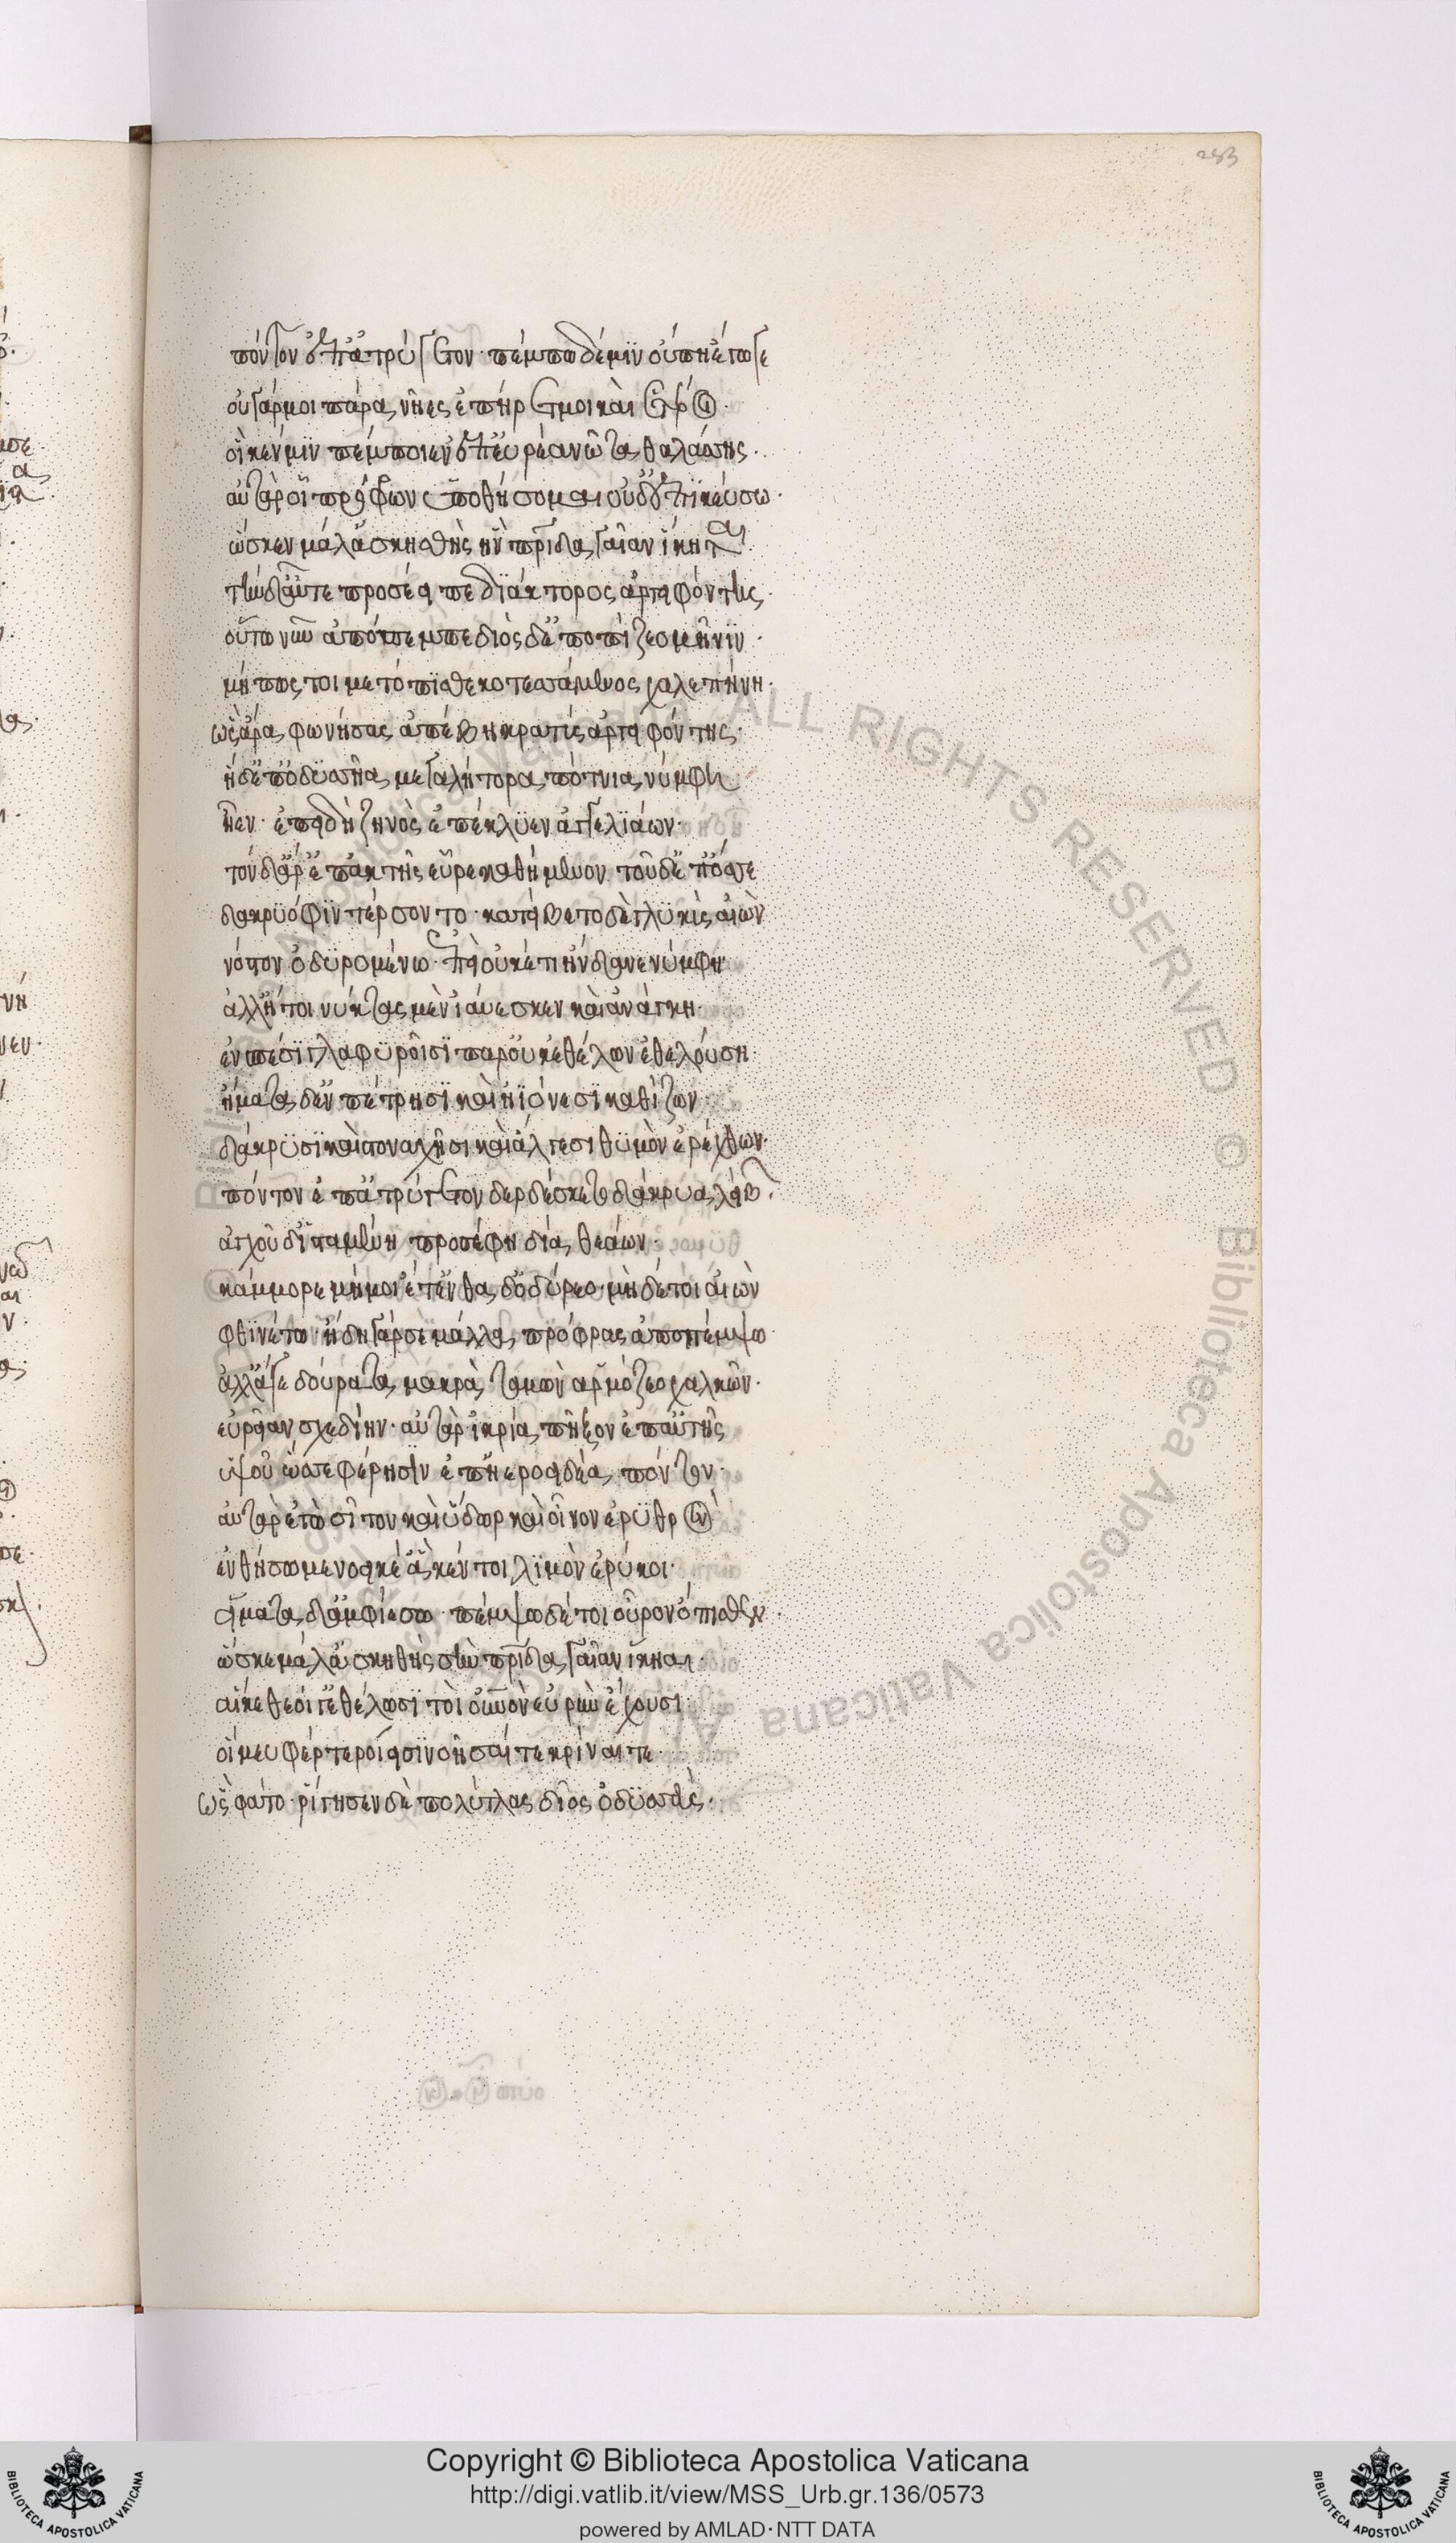 283
πόντον ἐπ' ἀτρύγετον· πέμπω δέ μϊν οὔπη ἔγωγε
οὐ γάρ μοι πάρα νῆες ἐπήρετμοι καὶ ἑταῖροι·
οἵ κέν μϊν πέμποιεν ἐπ' εὐρέα νῶτα θαλάσσης·
αὐτάρ οἱ πρόφρων ὑποθήσομαι οὐδ' ἐπϊκεύσω·
ὥς κεν μάλ' ἀσκηθὴς ἣν πατρίδα γαῖαν ἵκηται·
τὴν δ' αὖτε προσέειπε διάκτορος ἀργειφόντης·
οὕτω νῦν ἀπόπεμπε διὸς δ' ἐποπίζεο μῆνϊν·
μή πώς τοι μετόπϊσθε κοτεσσάμενος χαλεπήνη·
ὣς ἄρα φωνήσας ἀπέβη κρατὺς ἀργειφόντης·
ἡ δ' ἐπ' ὀδϋσσῆα μεγαλήτορα πότνια νύμφη
ἤεν· ἐπειδὴ ζηνὸς ἐπέκλϋεν ἀγγελϊάων·
τὸν δ' ἄρ' ἐπ' ἀκτῆς εὗρε καθήμενον τοῦ δ' ἔποτ' ὄσσε
δακρϋόφϊν τέρσοντο· κατείβετο δὲ γλϋκὺς αἰὼν
νόστον ὀδϋρομένω· ἐπεὶ οὐκέτι ἥνδανε νύμφη·
ἀλλ' ἤτοι νύκτας μὲν ἰαύεσκεν καὶ ἀνάγκη·
ἐν σπέσϊ γλαφϋροῖσϊ παρ' οὐκ ἐθέλων ἐθελούση·
ἤματα δ' ἐν πέτρησϊ καὶ ηϊόνεσϊ καθίζων·
δάκρϋσϊ καὶ στοναχῆσι καὶ ἄλγεσι θϋμὸν ἐρέχθων·
πόντον ἐπ' ἀτρύγετον δερκέσκετο δάκρυα λείβων·
ἀγχοῦ δ' ἱσταμένη προσέφη δία θεάων·
κάμμορε μή μοι ἔτ' ἐνθάδ' ὀδύρεο· μὴ δέ τοι αἰὼν
φθϊνέτω· ἤδη γάρ σε μάλλα πρόφρασσ' ἀποπέμψω·
ἀλλ' ἄγε δούρατα μακρὰ ταμὼν ἁρμόζεο χαλκῶ·
εὐρεῖαν σχεδίην· αὐτὰρ ἰκρία πῆξον ἐπ' αὐτῆς
ὑψοῦ ὥς σε φέρησϊν ἐπ' ἠεροειδέα πόντον·
αὐτὰρ ἐγὼ σῖτον καὶ ὕδωρ καὶ οἶνον ἐρϋθρὸν
ἐνθήσω μενοεικέ' ἅ κέν τοι λϊμὸν ἐρύκοι·
εἵματα δ' ἀμφιέσω· πέμψω δέ τοι οὖρον ὄπισθεν
ὥς κε μάλ' ἀσκηθὴς σὴν πατρίδα γαῖαν ἵκηαι·
αἴ κε θεοί γ' ἐθέλωσϊ τοὶ οὐρανὸν εὐρὺν ἔχουσι·
οἵ μευ φέρτεροί εἰσϊ νοῆσαί τε κρῖναί τε·
ὣς φάτο· ῥίγησεν δὲ πολύτλας δῖος ὀδϋσσεύς·
Biblioteca Apostolica Vaticana ALL RIGHTS RESERVED © Biblioteca Apostolica Vaticana
Copyright © Biblioteca Apostolica Vaticana
http://digi.vatlib.it/view/MSS_Urb.gr.136/0573
powered by AMLAD·NTT DATA
BIBLIOTECA APOSTOLICA VATICANA
BIBLIOTECA APOSTOLICA VATICANA